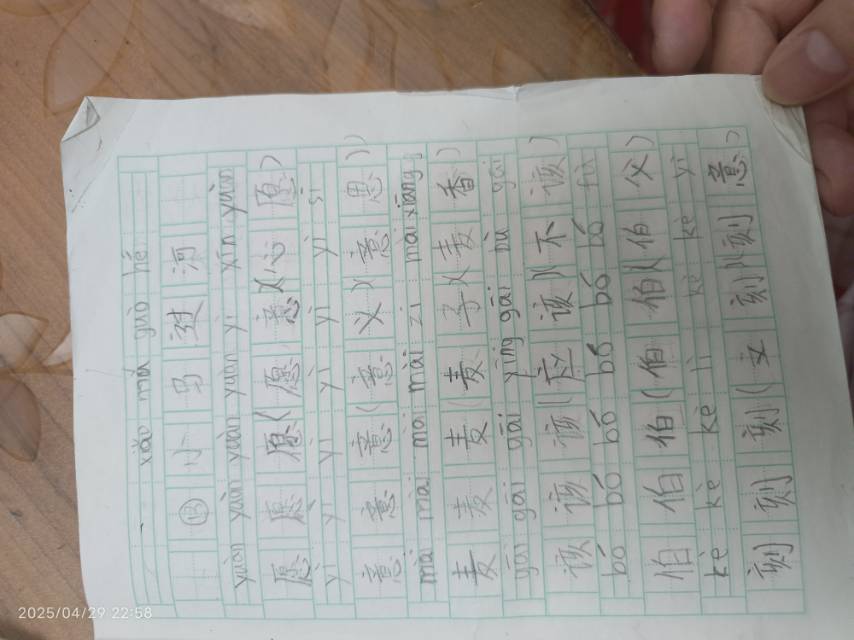 xiǎo mǎ guò hé
⑬ 小 马 过 河
yuàn yuàn yuàn yuàn yì xīn yuàn
愿 愿 愿 (愿 意) (心 愿)
yì yì yì yì yì yì sī
意 意 意 (意 义) (意 思)
mài mài mài mài zi mài xiāng
麦 麦 麦 (麦 子) (麦 香)
gāi gāi gāi yīng gāi bù gāi
该 该 该 (应 该) (不 该)
bó bó bó bó bó bó fù
伯 伯 伯 (伯 伯) (伯 父)
kè kè kè lì kè kè yì
刻 刻 刻 (立 刻) (刻 意)
2025/04/29 22:58